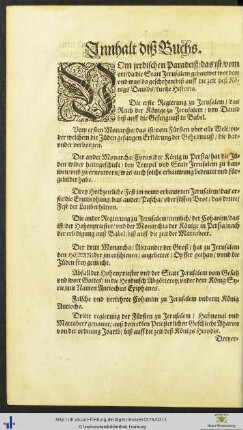 Innhalt diß Buchs.
Vom jrrdischen Paradeiß / das ist / vom
ort / da die Statt Jerusalem gebawet worden
vnd was da geschehen biß auff die zeit deß Kö-
nigs Dauids / kurtze Historia.
Die erste Regierung zu Jerusalem / das
Reich der Könige zu Jerusalem / von Dauid
biß auff die Gefengnuß zu Babel.
Vom ersten Monarcha / das ist / vom Fürsten vber alle Welt / vn-
der welchem die Jüden gefangen
Der ander Monarcha Cyrus der König in Persia / hat die Jü-
den wider heimgeschickt / den Tempel vnd Statt Jerusalem zu bawen
Drey Hochzeitliche Fest im newen erbawten Jerusalem / das er-
ste die Einweyhung / das ander Pascha / oder süssen Brot / das dritte /
Fest der Lauberhütten.
Die ander Regierung zu Jerusalem / nemlich / der Cohanim / das
ist der Hohenpriester / vnd der Monarcha der Könige in Persia / nach
der erledigung auß Babel / biß auff die zeit der Maccabeer.
Der dritt Monarcha / Alexander der Groß / hat zu Jerusalem
den HERRN der jm erschienen / angebettet / Opffer gethan / vnnd die
Jüden frey gemacht.
Abfall der Hohenpriester vnd der Statt Jerusalem vom Gesatz
vnd wort Gottes / in die Heydnisch Abgötterey / vnder dem König Sy-
rie, mit Namen Antiochus Epiphanes.
Falsche vnd verkehrte Cohanim zu Jerusalem vnderm König
Antiocho.
Dritte regierung der Fürsten zu Jerusalem / Hasmonai vnd
Maccabeer genannt / auß dem edlen Priesterlichen Geschlecht Aharon
von der ordnung Joarib / biß auff die zeit deß Königs Herodis.
Dreyer-
© Universitätsbibliothek Freiburg